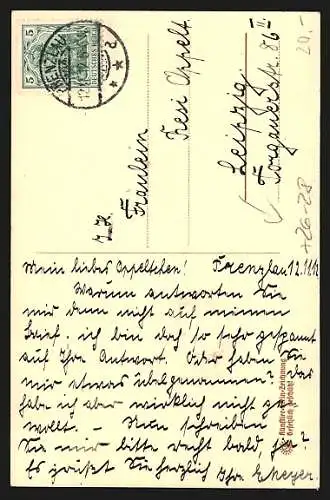 5
DEUTSCHES REICH
PRENZLAU
I. H.
Fräulein
Leni Oppelt.
Leipzig.
Torgauerstr. 86 II
20,-
A26-28
Mein liebes Oppeltchen! Prenzlau 12.11.12
Warum antworten Sie
mir denn nicht auf meinen
Brief, ich bin doch so sehr gespannt
auf Ihre Antwort. Oder haben Sie
mir etwas übelgenommen? Das
habe ich aber wirklich nicht ge-
wollt. – Nun schreiben
Sie mir bitte recht bald, ja?
Es grüßt Sie herzlich Ihre E. Meyer.
Künstler-Orig.-Zeichnung
Gesetzlich geschützt